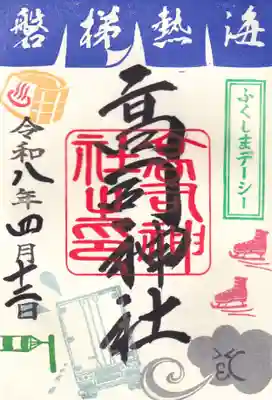 磐梯熱海
ふくしまデーシー
高司神社
高司神
社之印
令和八年四月十二日